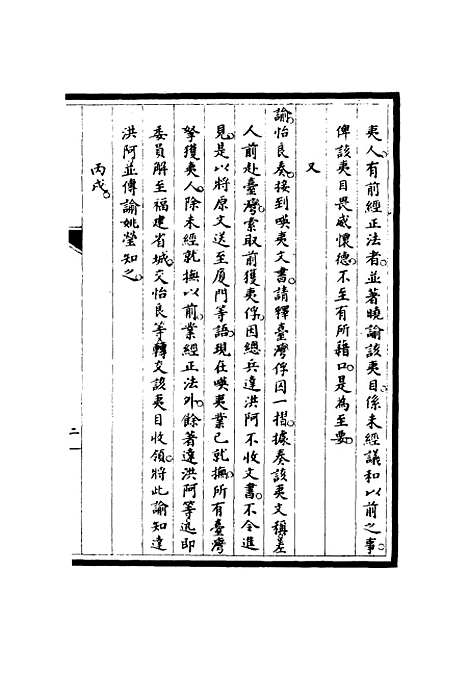 夷人。有前經正法者。並著曉諭該夷目。係未經議和以前之事。
俾該夷目畏威懷德。不至有所藉口。是為至要。
又
諭怡良奏。接到㗎夷文書。請釋臺灣俘囚一摺。據奏該夷文稱。差
人前赴臺灣。索取前獲夷俘。因總兵達洪阿不收文書。不令進
見。是以將原文送至厦門等語。現在㗎夷業已就撫。所有臺灣
拏獲夷人。除未經就撫以前。業經正法外。餘著達洪阿等迅即
委員解至福建省城。交怡良等轉交該夷目收領。將此諭知達
洪阿並傳諭姚瑩知之。
丙戌。
二一